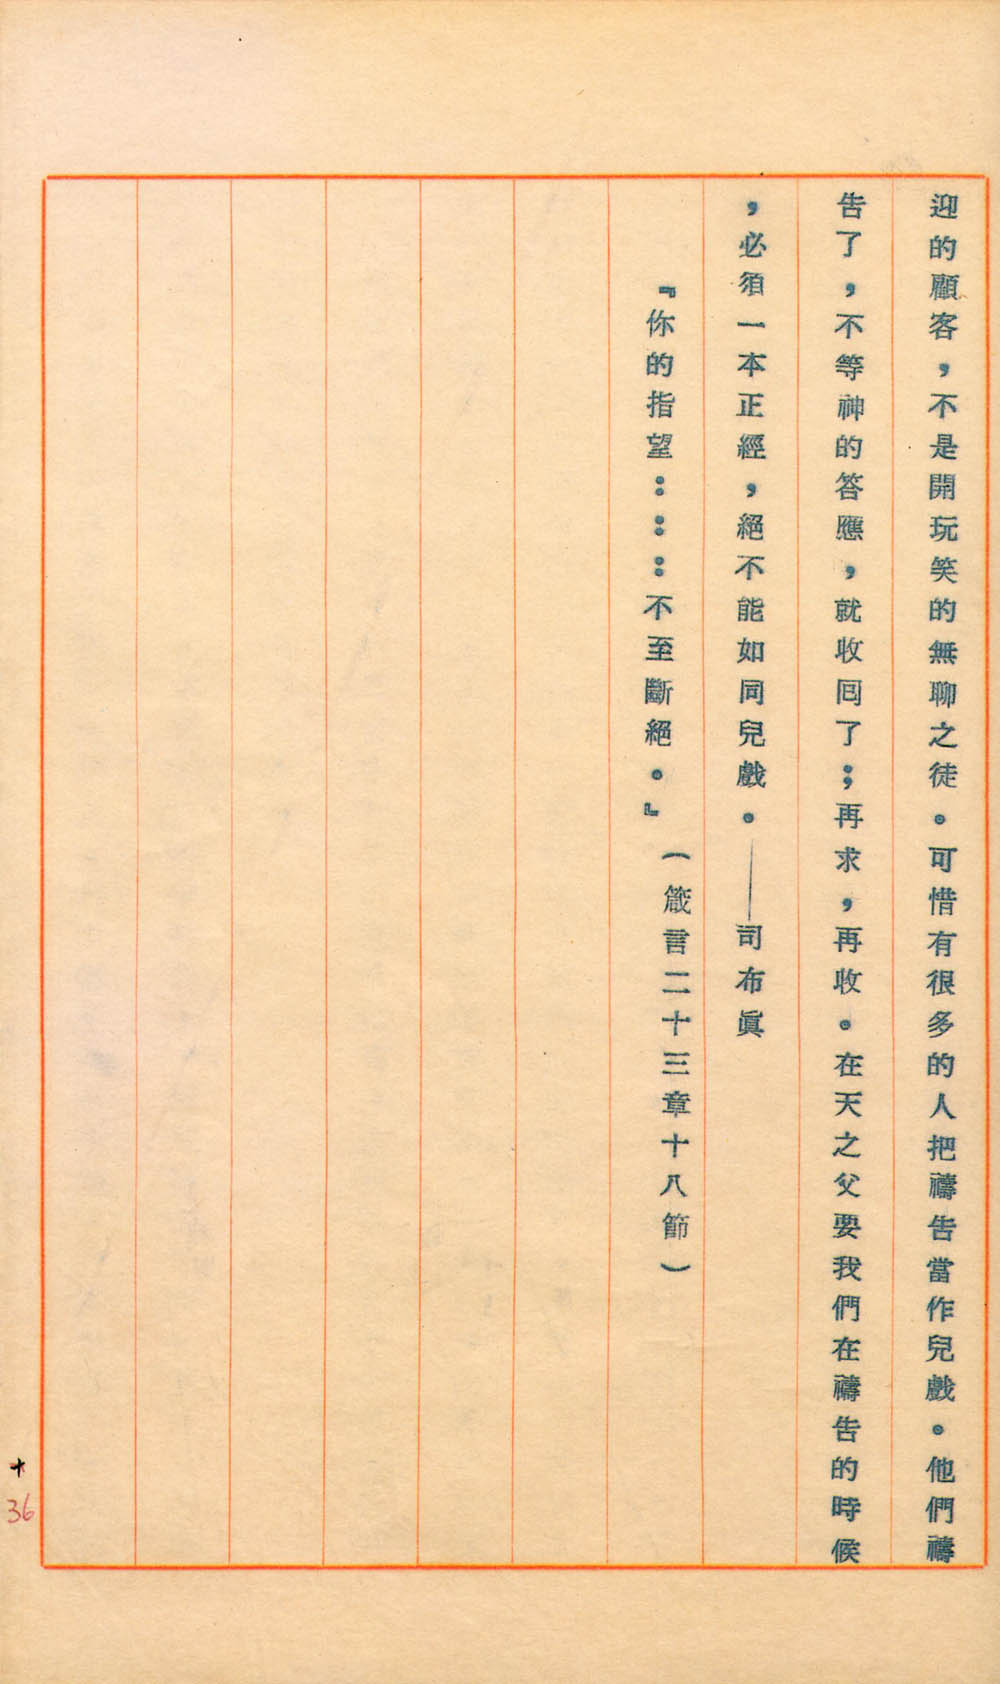 迎的顧客，不是開玩笑的無聊之徒。可惜有很多的人把禱告當作兒戲。他們禱
告了，不等神的答應，就收囘了；再求，再收。在天之父要我們在禱告的時候
，必須一本正經，絕不能如同兒戲。——司布眞
『你的指望………不至斷絕。』（箴言二十三章十八節）
十
36